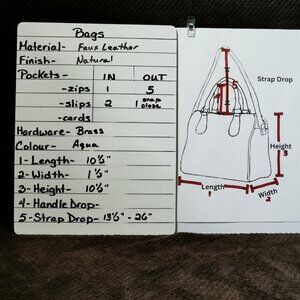 Bags
Material- Faux Leather
Finish- Natural
Pockets- IN OUT
-zips 1 5
-slips 2 1 snap close
-cards
Hardware- Brass
Colour- Aqua
1-Length- 10½"
2-Width- 1½"
3-Height- 10½"
4-Handle Drop-
5-Strap Drop- 13½" - 26"
Strap Drop
Height
3
Length
1
Width
2